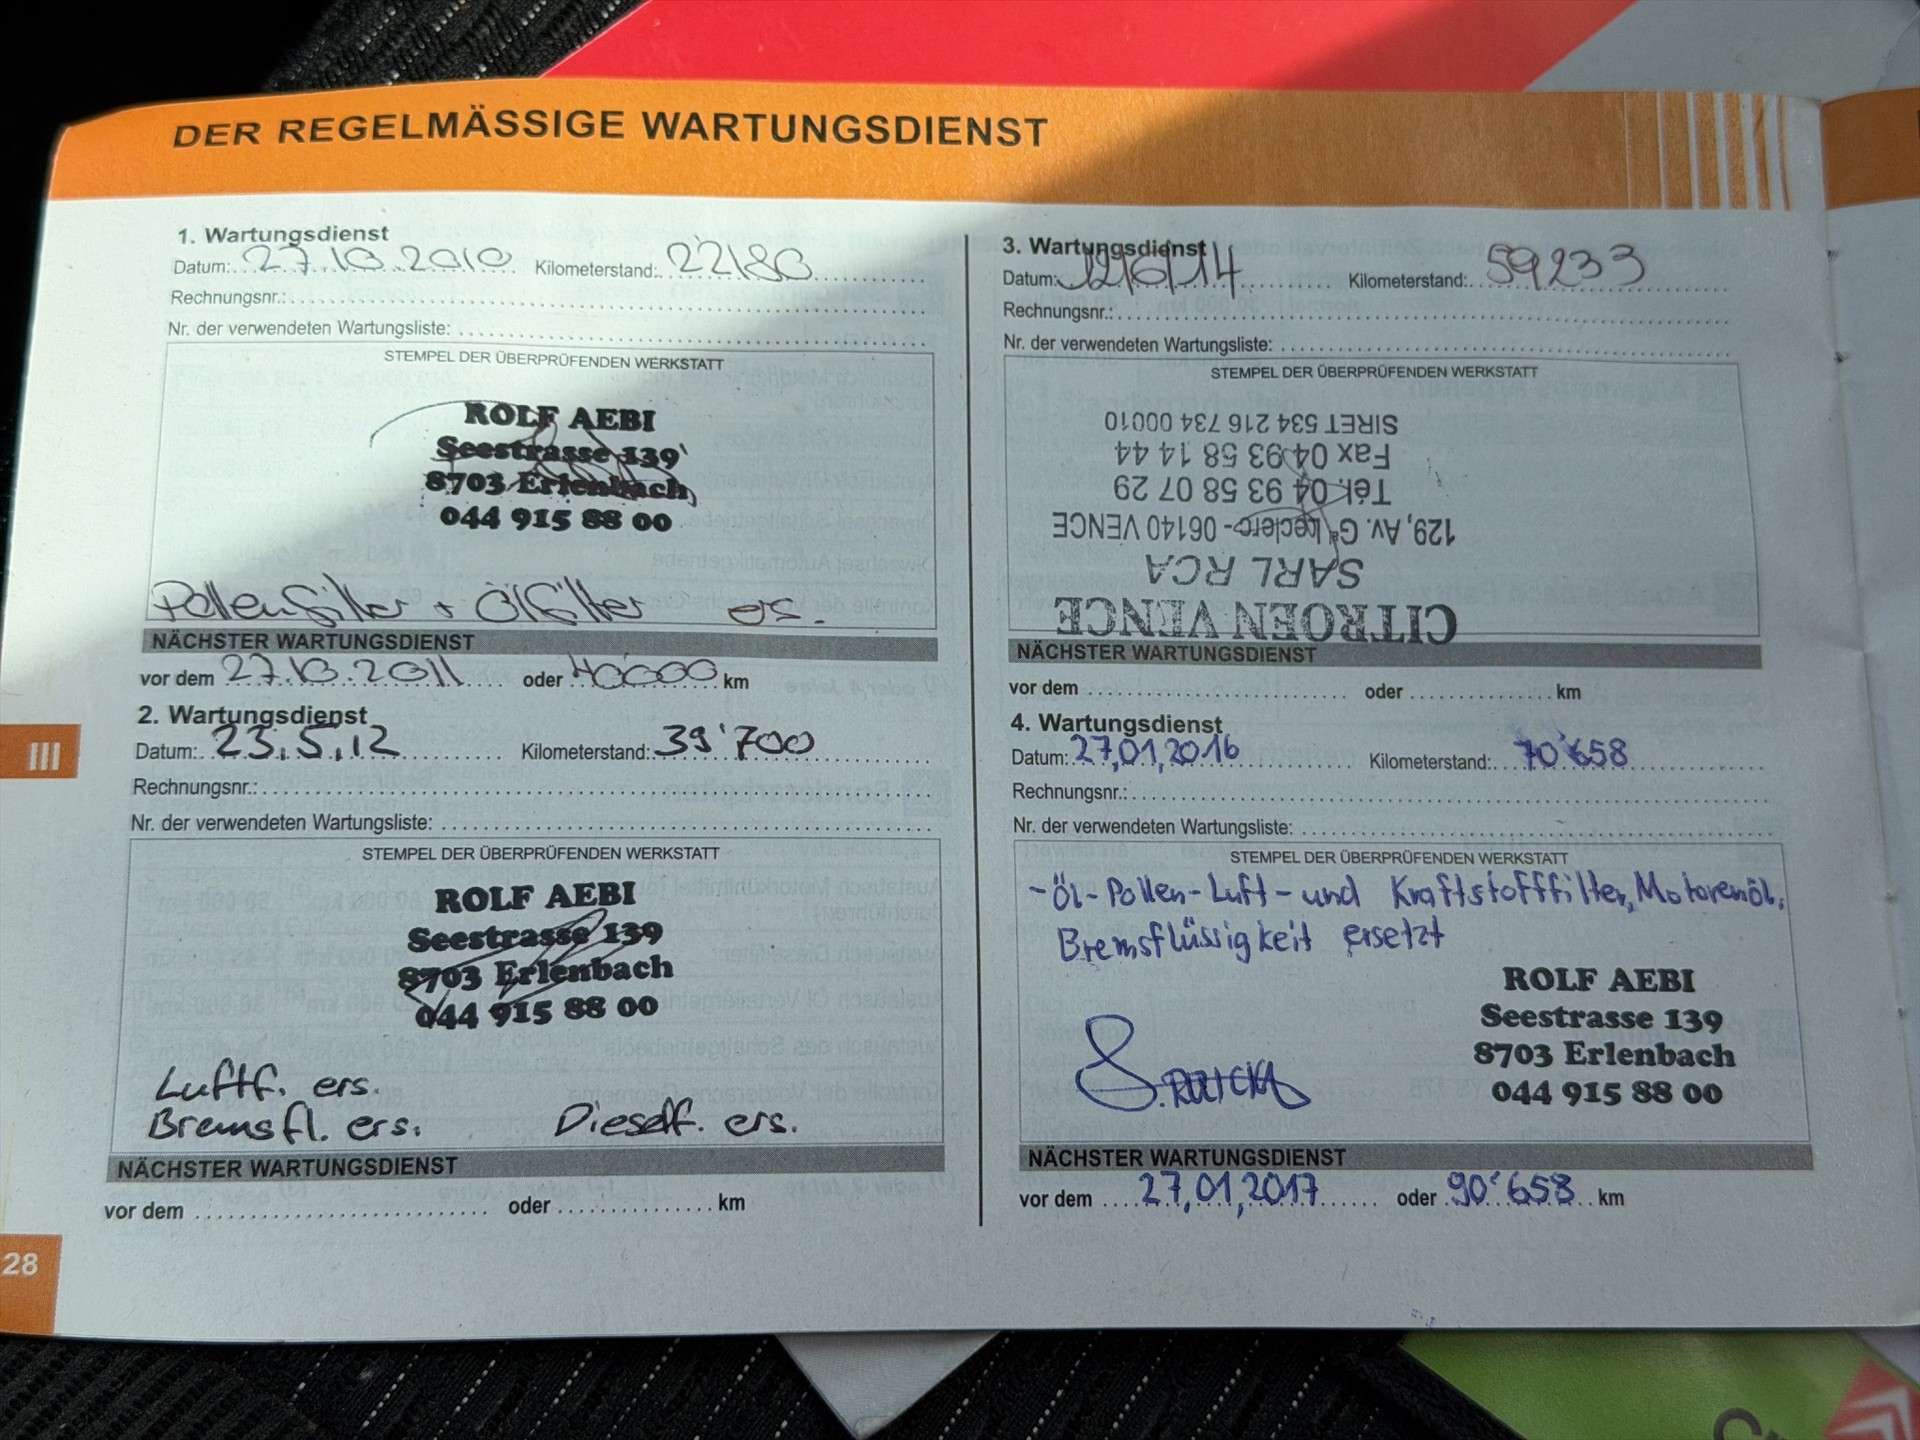 DER REGELMÄSSIGE WARTUNGSDIENST
1. Wartungsdienst
Datum: 27.10.2010 Kilometerstand: 22'180
Rechnungsnr.:
Nr. der verwendeten Wartungsliste:
STEMPEL DER ÜBERPRÜFENDEN WERKSTATT
ROLF AEBI
Seestrasse 139
8703 Erlenbach
044 915 88 00
Pollenfilter + Ölfilter ers.
NÄCHSTER WARTUNGSDIENST
vor dem 27.10.2011 oder 40'000 km
2. Wartungsdienst
Datum: 23.5.12 Kilometerstand: 39'700
Rechnungsnr.:
Nr. der verwendeten Wartungsliste:
STEMPEL DER ÜBERPRÜFENDEN WERKSTATT
ROLF AEBI
Seestrasse 139
8703 Erlenbach
044 915 88 00
Luftf. ers.
Bremsfl. ers. Dieself. ers.
NÄCHSTER WARTUNGSDIENST
vor dem oder km
3. Wartungsdienst
Datum: 12/6/14 Kilometerstand: 59233
Rechnungsnr.:
Nr. der verwendeten Wartungsliste:
STEMPEL DER ÜBERPRÜFENDEN WERKSTATT
CITROEN VENCE
SARL RCA
129, Av. Gal Leclerc - 06140 VENCE
Tél. 04 93 58 07 29
Fax 04 93 58 14 44
SIRET 534 216 734 00010
NÄCHSTER WARTUNGSDIENST
vor dem oder km
4. Wartungsdienst
Datum: 27,01,2016 Kilometerstand: 70'658
Rechnungsnr.:
Nr. der verwendeten Wartungsliste:
STEMPEL DER ÜBERPRÜFENDEN WERKSTATT
-Öl-Pollen-Luft-und Kraftstofffilter, Motorenöl,
Bremsflüssigkeit ersetzt
ROLF AEBI
Seestrasse 139
8703 Erlenbach
044 915 88 00
NÄCHSTER WARTUNGSDIENST
vor dem 27,01,2017 oder 90'658 km
III
28